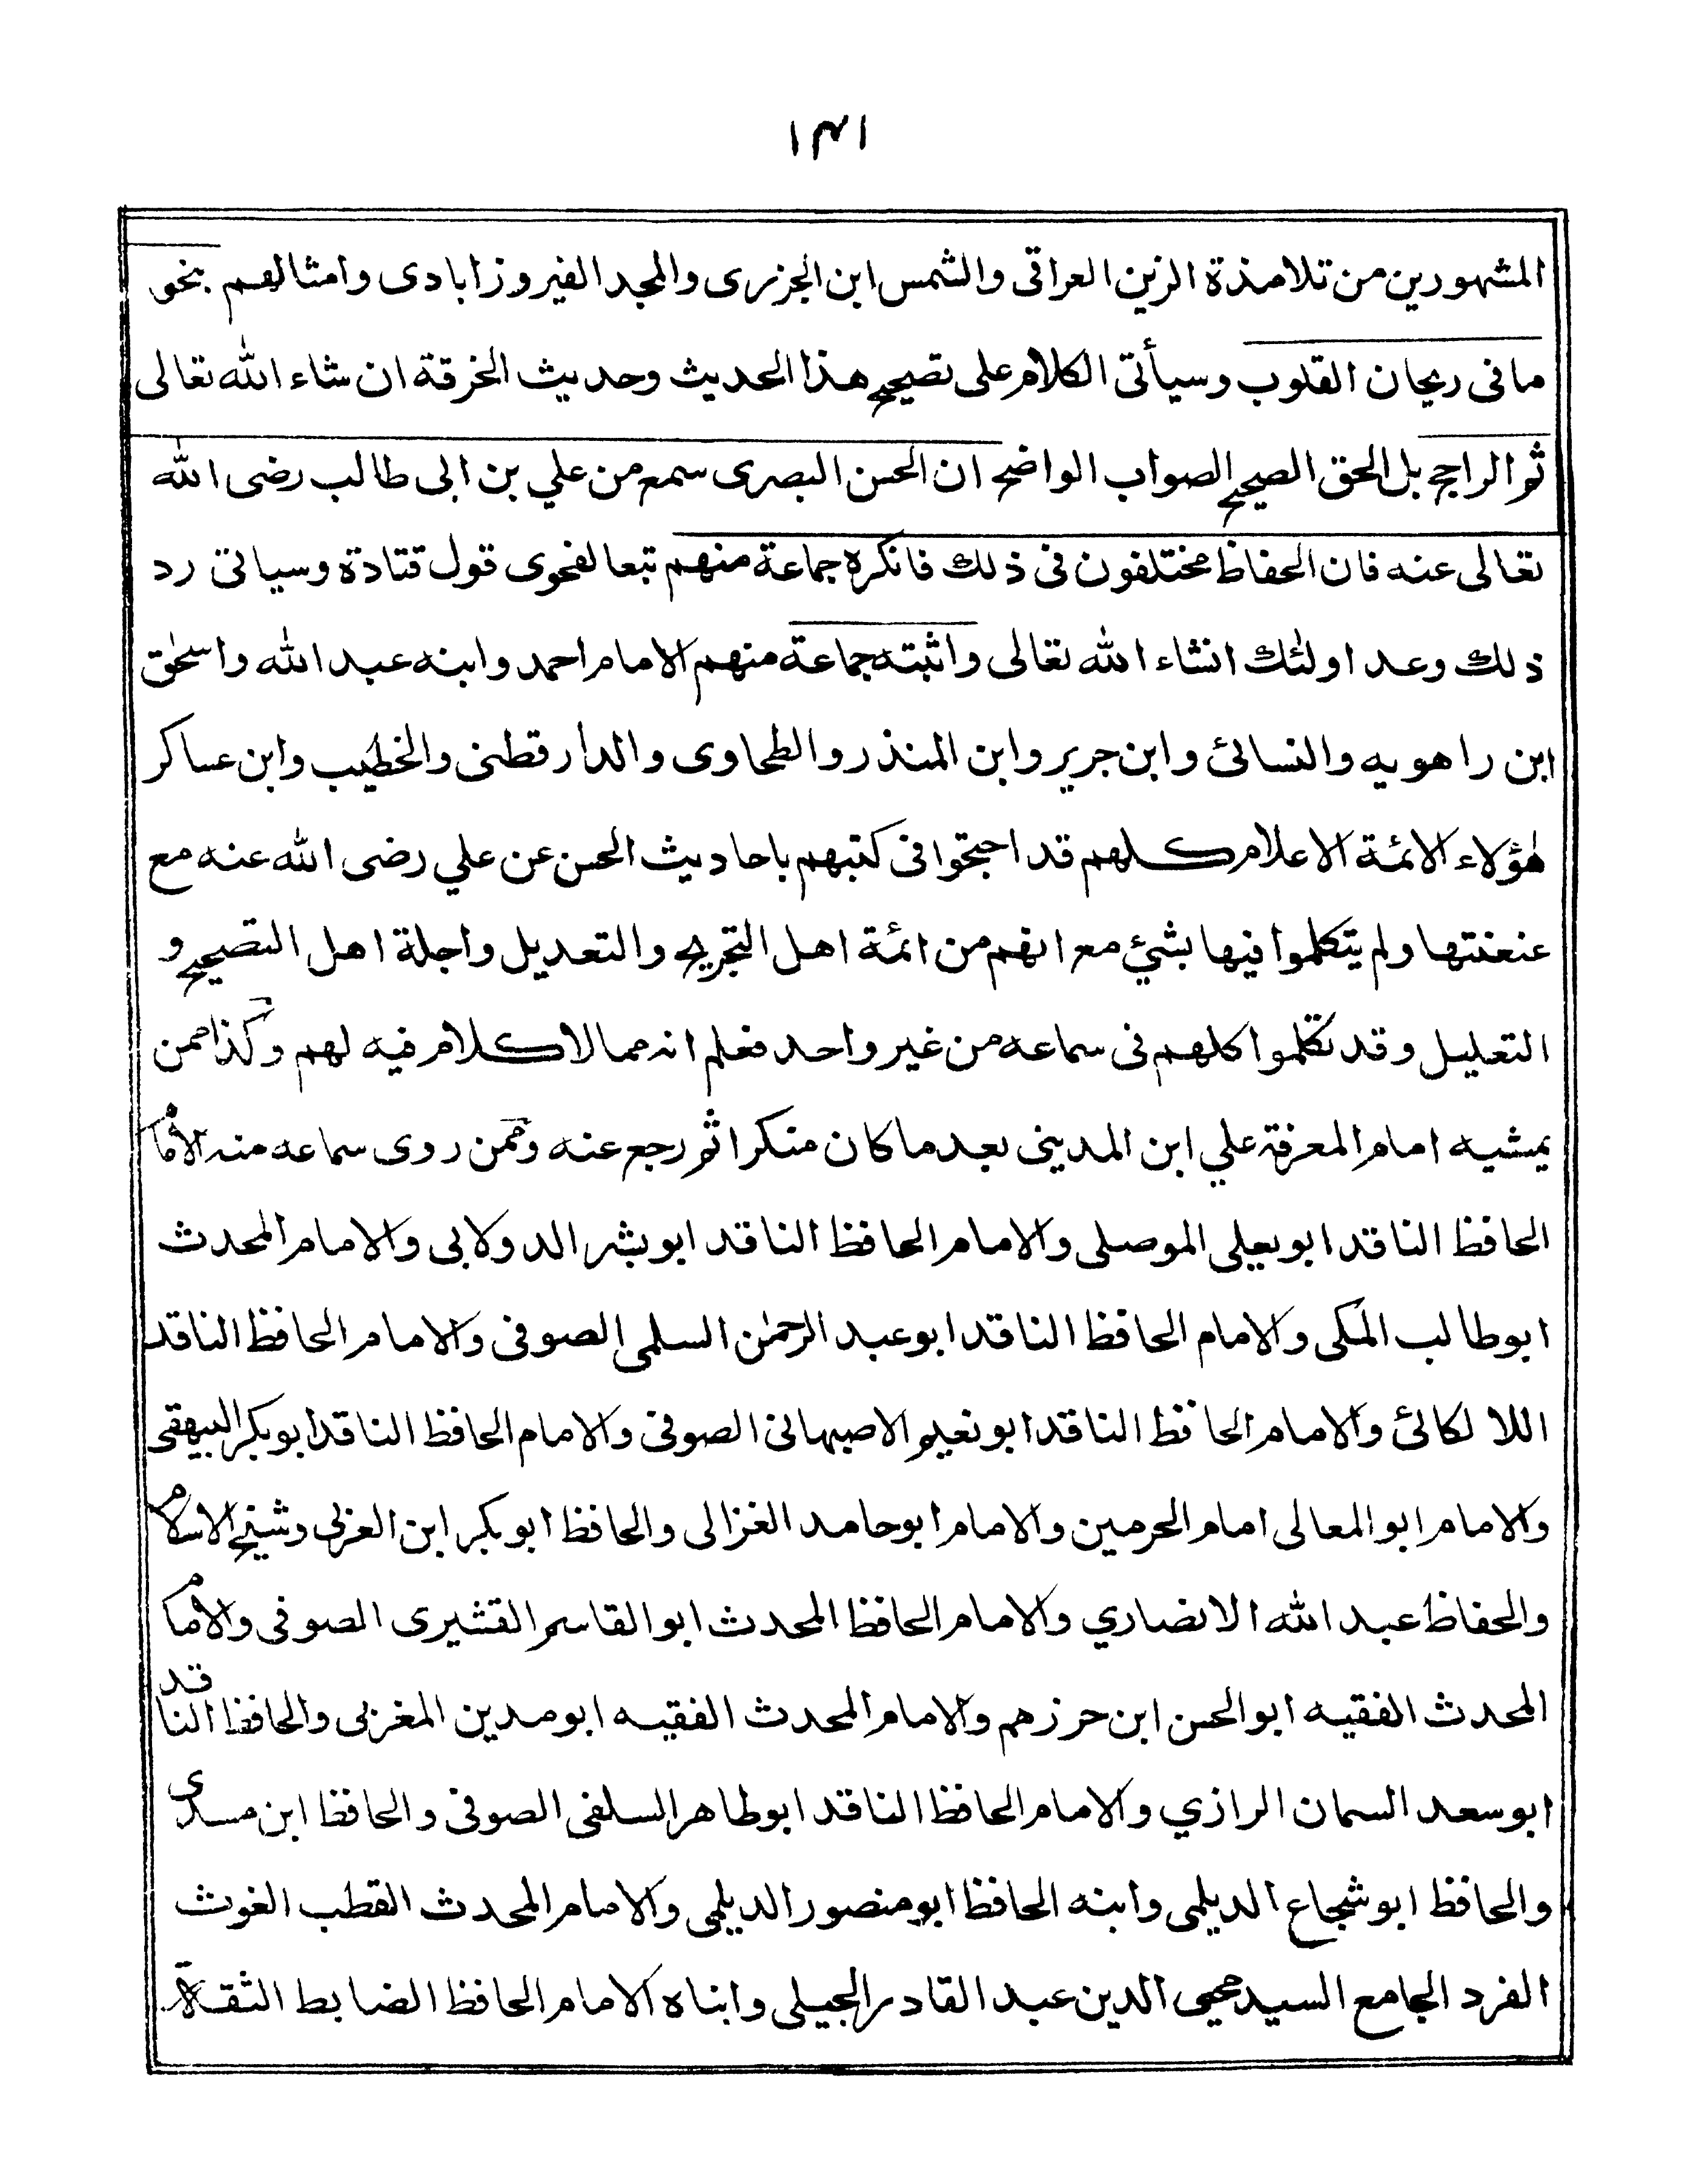 ١٣١
المشهورين من تلامذة الزين العراقى والشمس ابن الجزرى والمجد الفيروزابادى وامثالهم بنحو
ما فى ريحان القلوب وسيأتى الكلام على تصحيح هذا الحديث وحديث الخرقة ان شاء الله تعالى
ثم الراجح بل الحق الصحيح الصواب الواضح ان الحسن البصرى سمع من علي بن ابى طالب رضى الله
تعالى عنه فان الحفاظ مختلفون فى ذلك فانكره جماعة منهم تبعا لفحوى قول قتادة وسياتى رد
ذلك وعد اولئك انشاء الله تعالى واثبته جماعة منهم الامام احمد وابنه عبد الله واسحٰق
ابن راهويه والنسائى وابن جرير وابن المنذر والطحاوى والدارقطنى والخطيب وابن عساكر
هٰؤلاء الائمة الاعلام كلهم قد احتجوا فى كتبهم باحاديث الحسن عن علي رضى الله عنه مع
عنعنتها ولم يتكلموا فيها بشئ مع انهم من ائمة اهل التجريح والتعديل واجلة اهل التصحيح و
التعليل وقد تكلموا كلهم فى سماعه من غير واحد فعلم انه مما لا كلام فيه لهم وكذا ممن
يمشيه امام المعرفة علي ابن المدينى بعد ما كان منكرا ثم رجع عنه وممن روى سماعه منه الامام
الحافظ الناقد ابو يعلى الموصلى والامام الحافظ الناقد ابو بشر الدولابى والامام المحدث
ابو طالب المكى والامام الحافظ الناقد ابو عبد الرحمٰن السلمى الصوفى والامام الحافظ الناقد
اللالكائى والامام الحافظ الناقد ابو نعيم الاصبهانى الصوفى والامام الحافظ الناقد ابو بكر البيهقى
والامام ابو المعالى امام الحرمين والامام ابو حامد الغزالى والحافظ ابو بكر ابن العربى وشيخ الاسلام
والحفاظ عبد الله الانصاري والامام الحافظ المحدث ابو القاسم القشيرى الصوفى والامام
المحدث الفقيه ابو الحسن ابن حرزهم والامام المحدث الفقيه ابو مدين المغربى والحافظ الناقد
ابو سعد السمان الرازي والامام الحافظ الناقد ابو طاهر السلفى الصوفى والحافظ ابن مسدى
والحافظ ابو شجاع الديلمى وابنه الحافظ ابو منصور الديلمى والامام المحدث القطب الغوث
الفرد الجامع السيد محيى الدين عبد القادر الجيلى وابناه الامام الحافظ الضابط الثقة